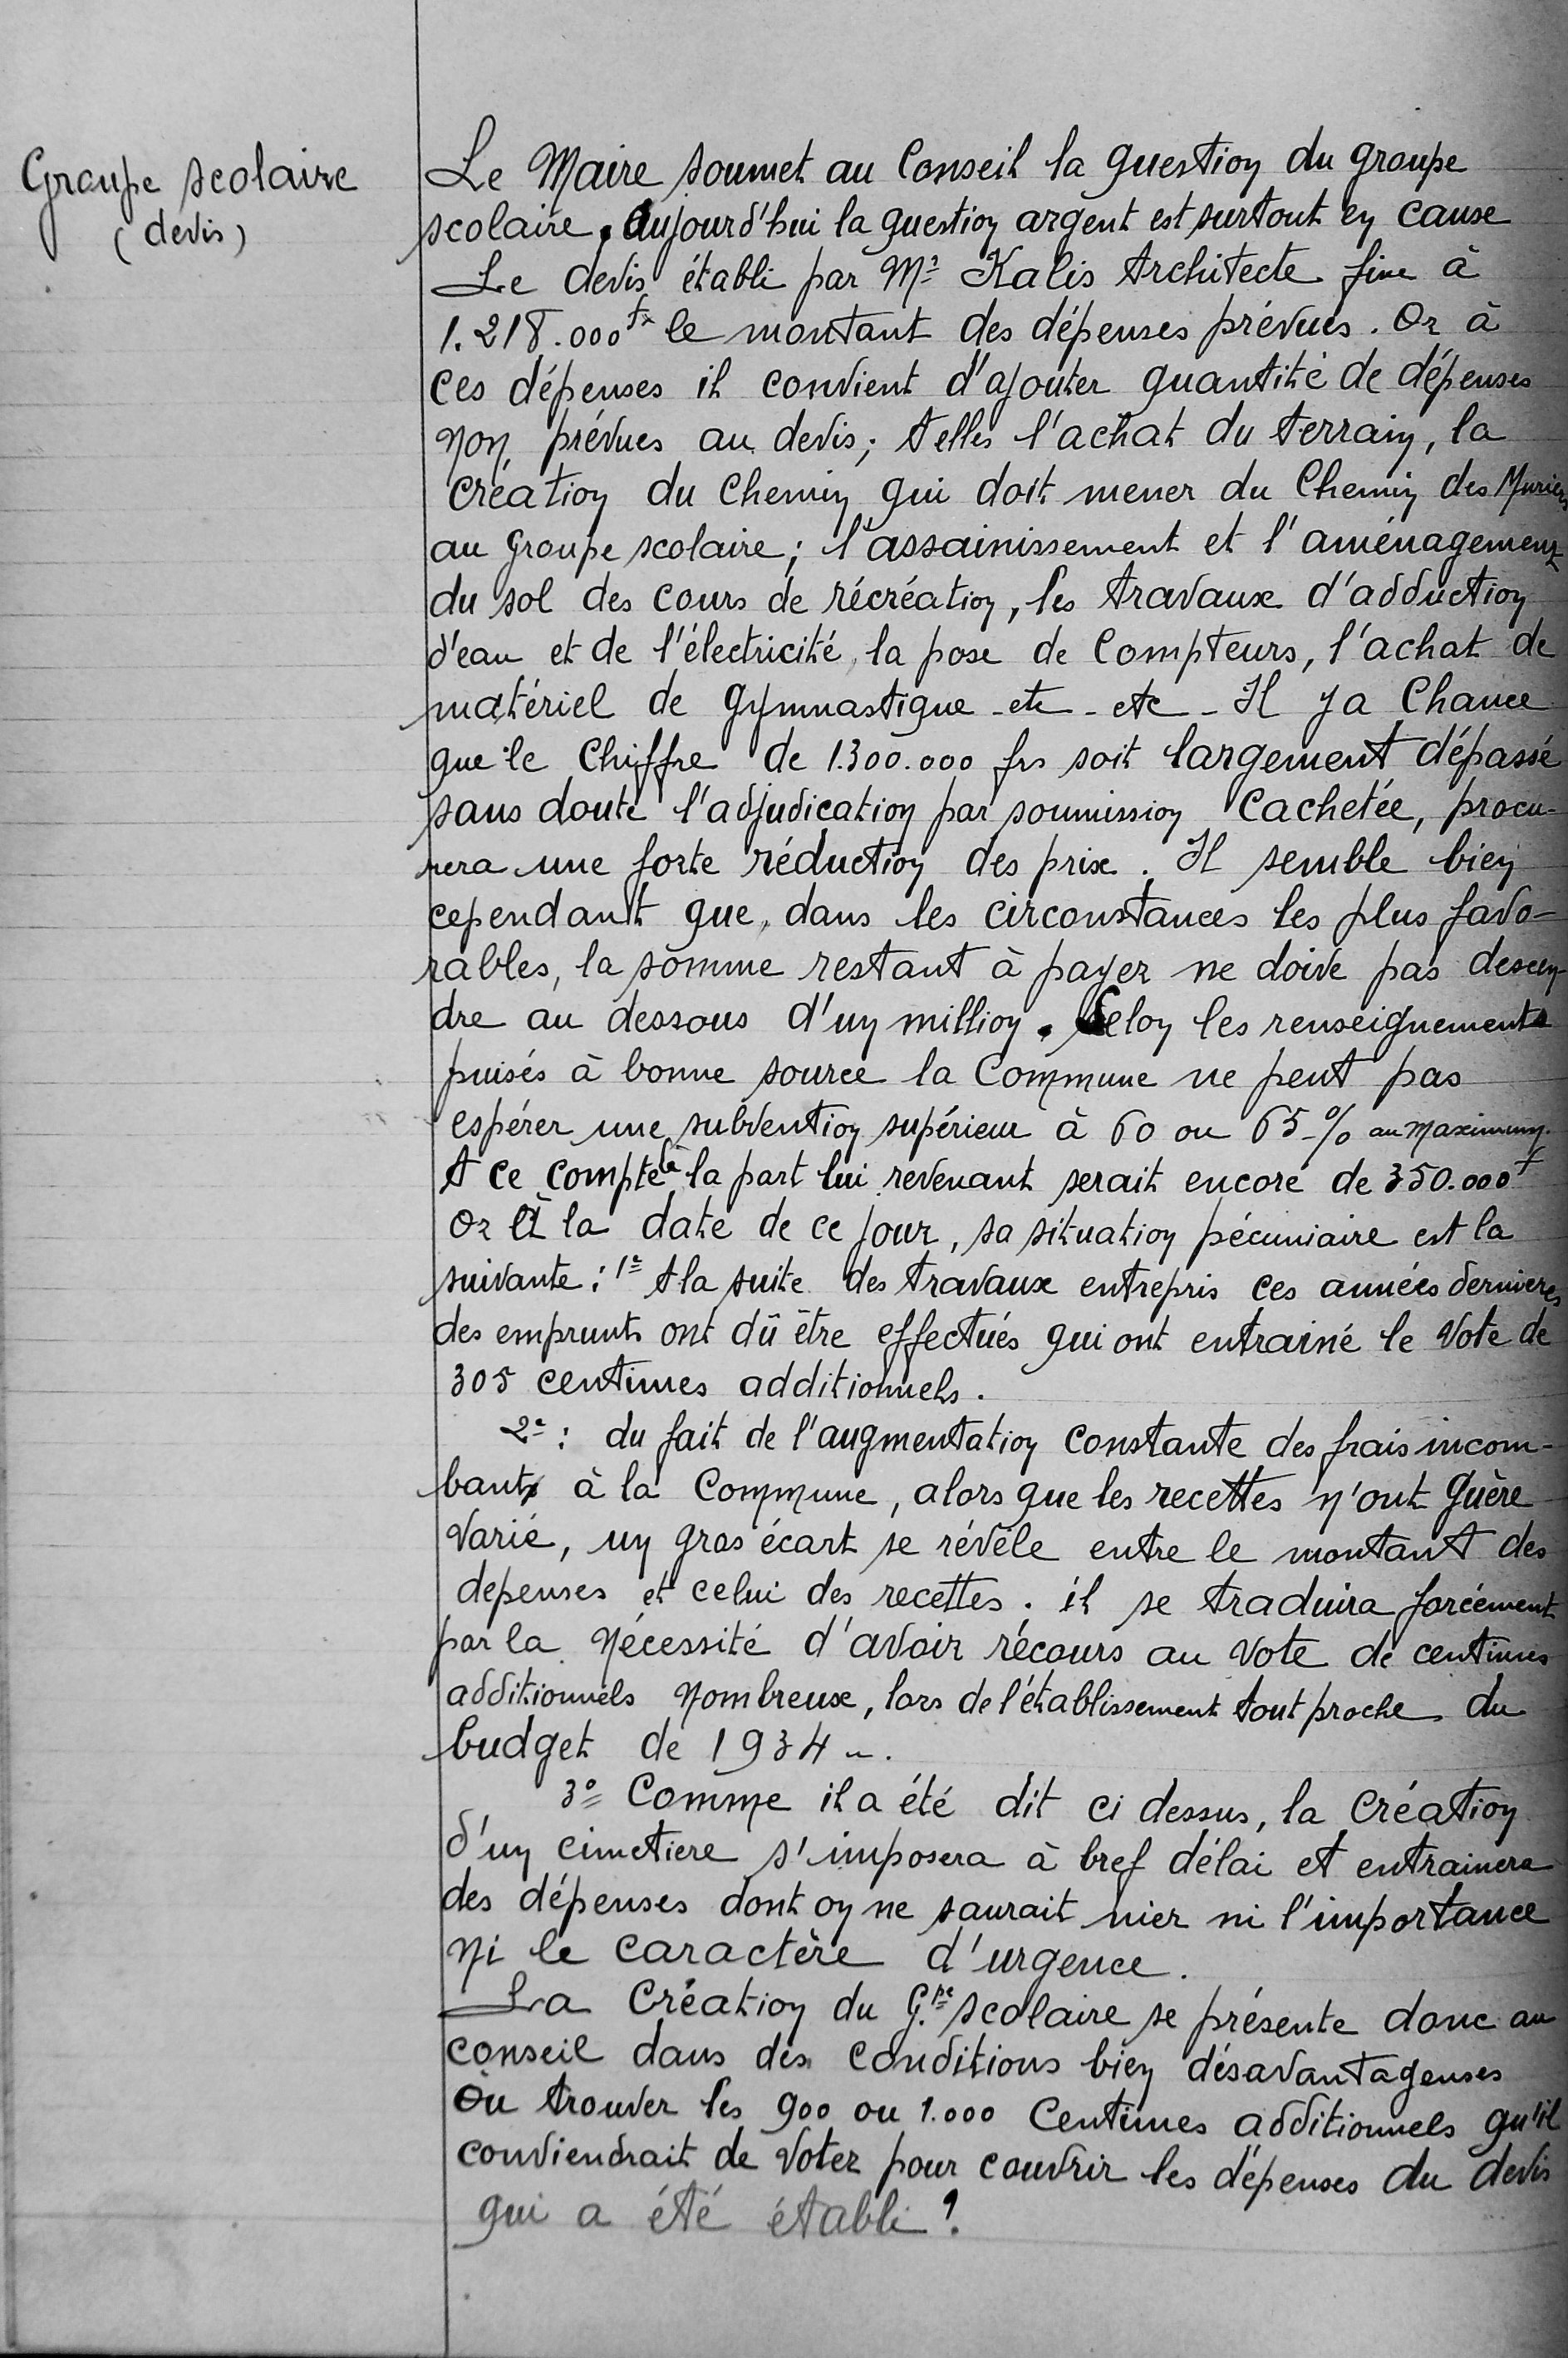 Groupe scolaire
(devis)
Le Maire soumet au Conseil la question du groupe
scolaire. Aujourd'hui la question argent est surtout en cause
Le devis établi par Mr Kalis Architecte fixe à
1.218.000 fx le montant des dépenses prévues. Or à
ces dépenses il convient d'ajouter quantité de dépenses
non prévues au devis; telles l'achat du terrain, la
création du Chemin qui doit mener du Chemin des
au groupe scolaire; l'assainissement et l'aménagement
du sol des cours de récréation, les travaux d'adduction
d'eau et de l'électricité, la pose de Compteurs, l'achat de
matériel de gymnastique - etc - etc - Il y a Chance
que le Chiffre de 1.300.000 frs soit largement dépassé
sans doute l'adjudication par soumission Cachetée, procu-
rera une forte réduction des prix. Il semble bien
cependant que, dans les circonstances les plus favo-
rables, la somme restant à payer ne doive pas descen-
dre au dessous d'un million. Selon les renseignements
puisés à bonne source la Commune ne peut pas
espérer une subvention supérieur à 60 ou 65 % au maximum.
A ce compte là la part lui revenant serait encore de 350.000 f
Or à la date de ce jour, sa situation pécuniaire est la
suivante: 1e A la suite des travaux entrepris ces années dernières
des emprunts ont dû être effectués qui ont entrainé le Vote de
305 centimes additionnels.
2e: du fait de l'augmentation Constante des frais incom-
bant à la Commune, alors que les recettes n'ont guère
varié, un gros écart se révèle entre le montant des
depenses et celui des recettes. il se traduira forcément
par la nécessité d'avoir récours au Vote de centimes
additionnels nombreux, lors de l'établissement tout proche du
budget de 1934 -.
3° Comme il a été dit ci dessus, la Création
d'un cimetiere s'imposera à bref délai et entrainera
des dépenses dont on ne saurait nier ni l'importance
ni le caractère d'urgence.
La Création du G.pe scolaire se présente donc au
conseil dans des conditions bien désavantageuses
Où trouver les 900 ou 1.000 Centimes additionnels qu'il
conviendrait de voter pour couvrir les dépenses du devis
qui a été établi?